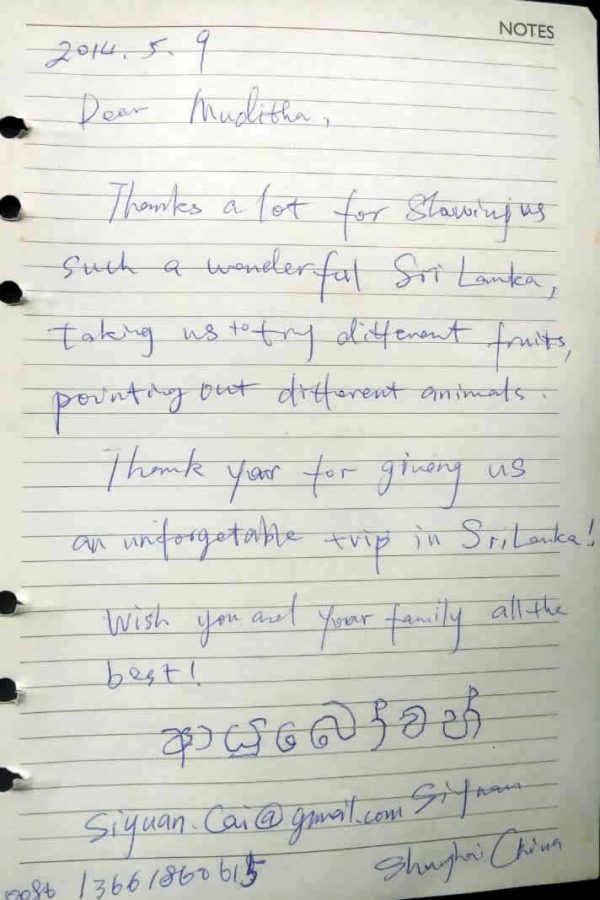 NOTES
2014. 5. 9
Dear Muditha,
Thanks a lot for Showing us
such a wonderful Sri Lanka,
taking us to try different fruits,
pointing out different animals.
Thank you for giving us
an unforgetable trip in Sri Lanka!
Wish you and your family all the
best!
ආයුබෝවන්
Siyuan.Cai@gmail.com Siyuan
0086 13661860615 Shanghai China